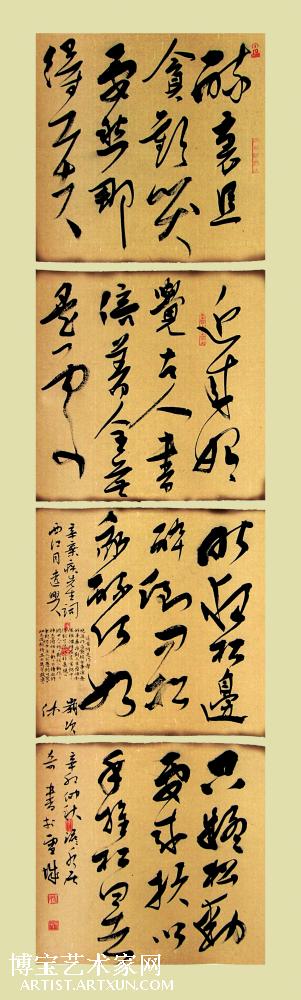 醉裏且
貪歡笑
要愁那
得工夫
近来始
覺古人書
信著全無
是處
昨夜松邊
醉倒问松
我醉何如
辛棄疾先生詞
西江月遣興
歲次
只疑松動
要来扶以
手推松曰去
辛卯仲秋
書於雪城
博宝艺术家网
ARTIST.ARTXUN.COM